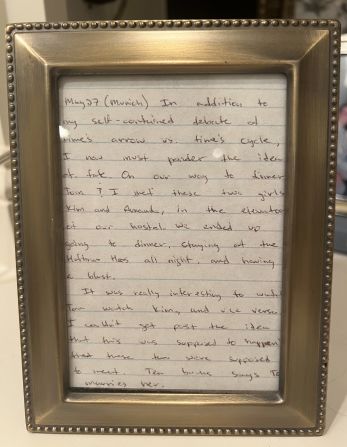 May 27 (Munich) In addition to
my self-contained debate of
time's arrow vs. time's cycle,
I now must ponder the idea
of fate. On our way to dinner
Tom & I met these two girls
Kim and Amanda, in the elevator
of our hostel. We ended up
going to dinner, staying at the
Haus all night, and having
a blast.
It was really interesting to watch
Tom watch Kim, and vice versa
I couldn't get past the idea
that this was supposed to happen
that these two were supposed
to meet. Ten says
marries her.